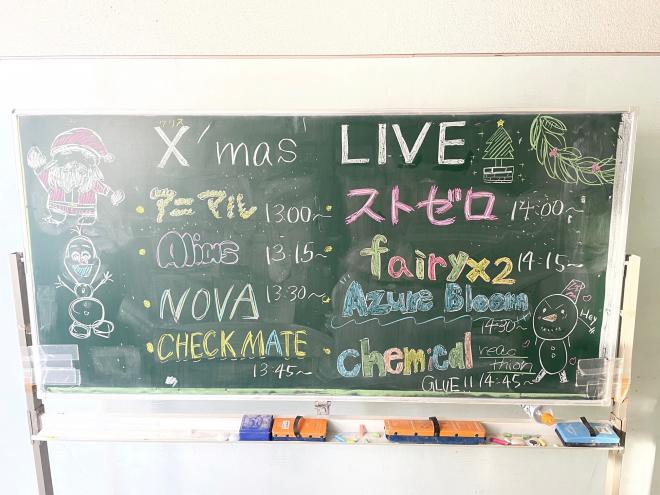 クリス
X'mas LIVE
13:00~
Alias 13:15~
NOVA 13:30~
CHECKMATE
13:45~
ストゼロ 14:00~
fairy×2 14:15~
Azure Bloom
14:30~
chemical reac
thion
GLUE!! 14:45~
Hey